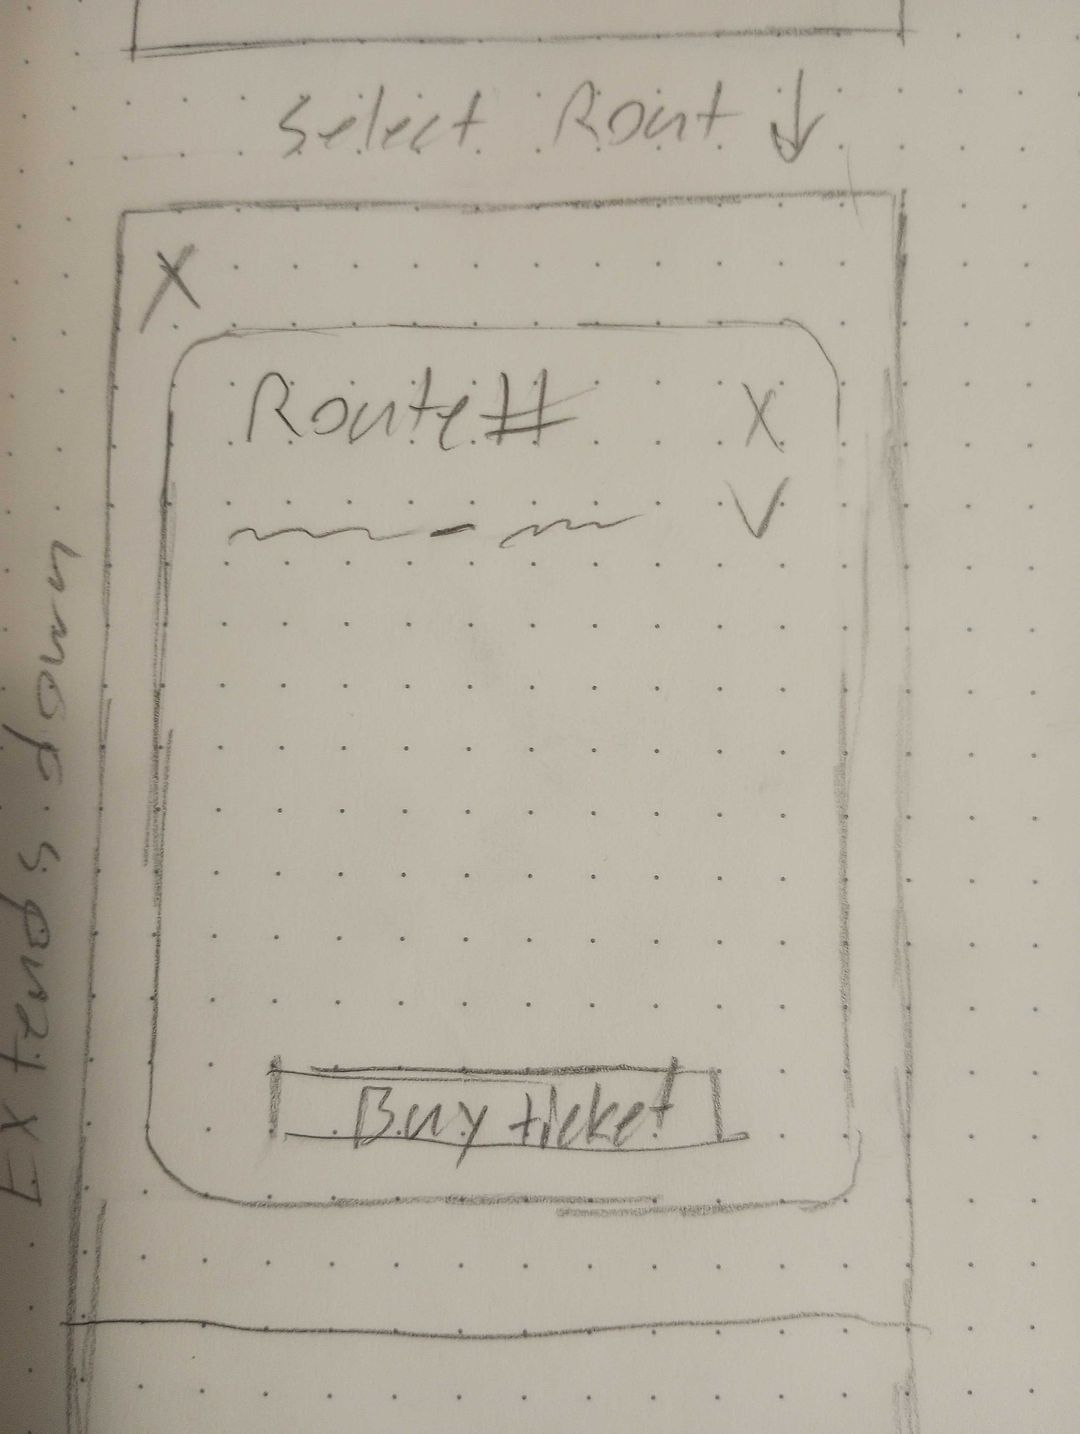 Select Rout ↓
X
Route# X
V
Buy ticket
Extends down